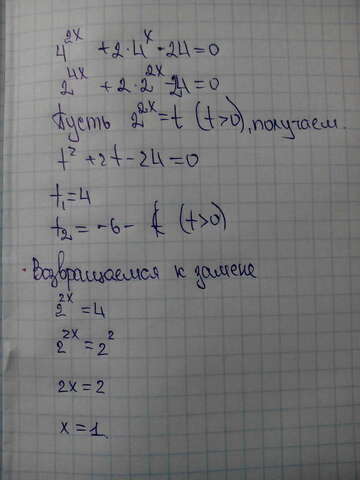 4^{2x} + 2·4^{x} - 24 = 0
2^{4x} + 2·2^{2x} - 24 = 0
Пусть 2^{2x} = t (t>0), получаем.
t² + 2t - 24 = 0
t₁ = 4
t₂ = -6 - (t>0)
Возвращаемся к замене
2^{2x} = 4
2^{2x} = 2²
2x = 2
x = 1.